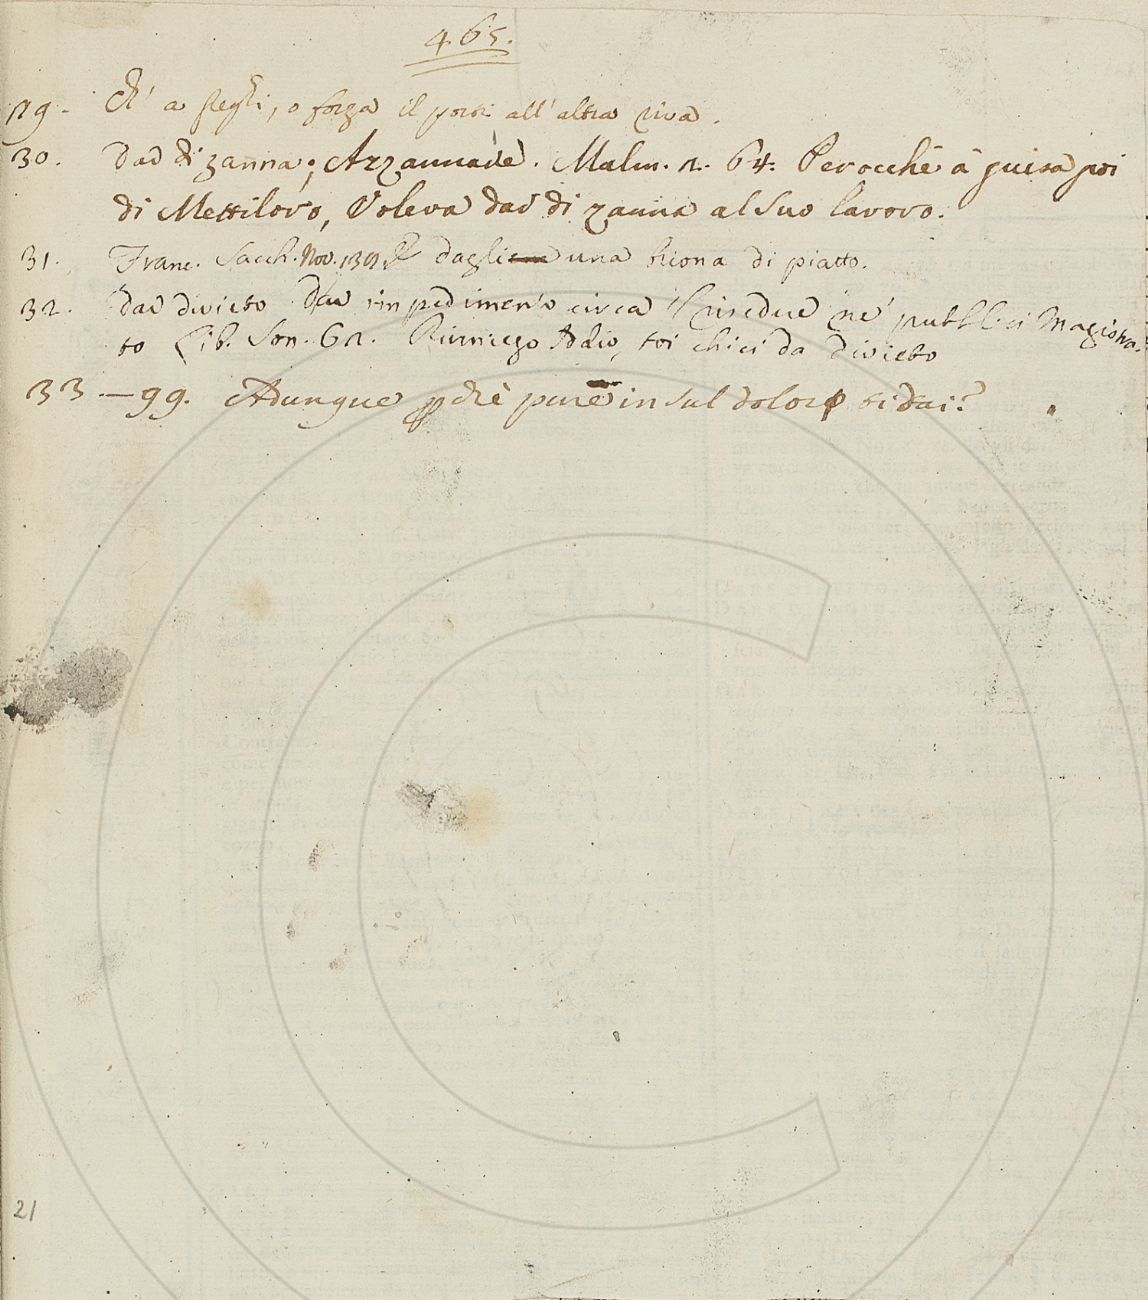 465.
29. Ch' a preghi, o forza il porti all' altra riva.
30. Dar di zanna; Azzannare. Malm. 2. 64. Perocchè a guisa poi
di Mettiloro, Voleva dar di zanna al suo lavoro.
31. Franc. Sacch. Nov. dagli una buona di piatto.
32. Dar divieto Dar impedimento circa risedere ne' pubblici Magistra-
to Lib. Son. 62. Rinniego Addio, toi chi ci da divieto
33. — 99. Adunque pchè pure in sul dolor ti dai?
21